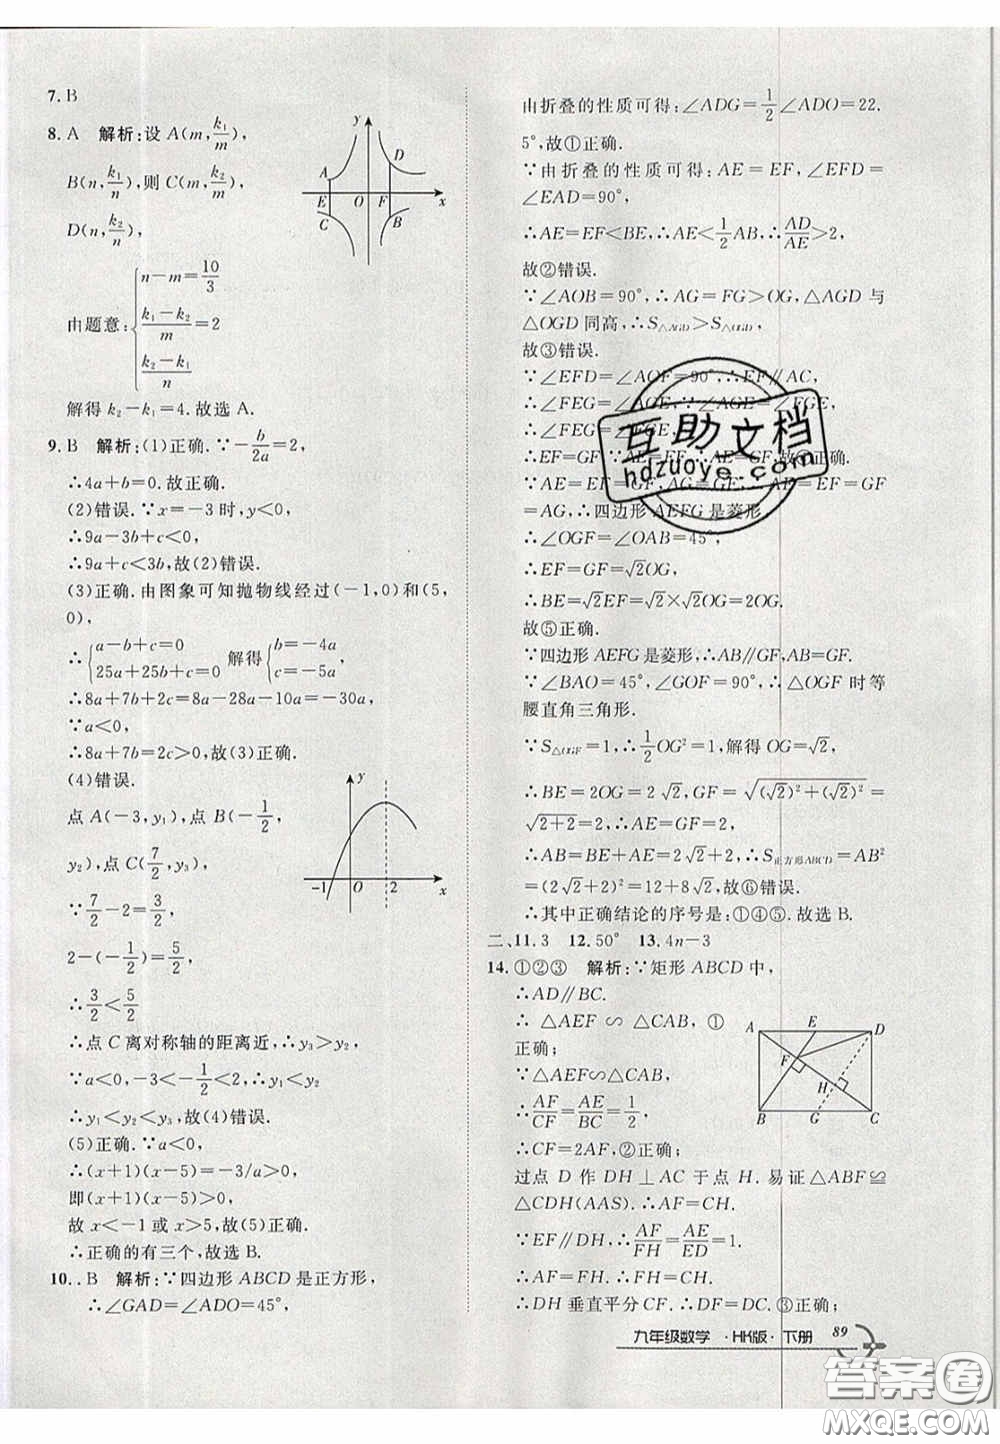 7. B
8. A 解析:设 A(m, k₁/m),
B(n, k₁/n),则 C(m, k₂/m),
D(n, k₂/n),
由题意:{ n−m=10/3
(k₁−k₂)/m=2
(k₂−k₁)/n
解得 k₂−k₁=4.故选 A.
y
D
A
E O F x
C
B
9. B 解析:(1)正确.∵−b/2a=2,
∴4a+b=0.故正确.
(2)错误.∵x=−3时,y<0,
∴9a−3b+c<0,
∴9a+c<3b,故(2)错误.
(3)正确.由图象可知抛物线经过(−1,0)和(5,
0),
∴{ a−b+c=0
25a+25b+c=0 解得{ b=−4a
c=−5a,
∴8a+7b+2c=8a−28a−10a=−30a,
∵a<0,
∴8a+7b+2c>0,故(3)正确.
(4)错误.
点 A(−3,y₁),点 B(−1/2,
y₂),点 C(7/2,y₃),
∵7/2−2=3/2,
2−(−1/2)=5/2
∴3/2<5/2
y
−1 O 2 x
∴点 C 离对称轴的距离近,∴y₃>y₂,
∵a<0,−3<−1/2<2,∴y₁<y₂
∴y₁<y₂<y₃,故(4)错误.
(5)正确.∵a<0,
∴(x+1)(x−5)=−3/a>0,
即(x+1)(x−5)>0,
故 x<−1 或 x>5,故(5)正确.
∴正确的有三个,故选 B.
10. . B 解析:∵四边形 ABCD 是正方形,
∴∠GAD=∠ADO=45°,
由折叠的性质可得:∠ADG=1/2∠ADO=22.
5°,故①正确.
∵由折叠的性质可得:AE=EF,∠EFD=
∠EAD=90°,
∴AE=EF<BE,∴AE<1/2AB,∴AD/AE>2,
故②错误.
∵∠AOB=90°,∴AG=FG>OG,△AGD 与
△OGD 同高,∴S△AGD>S△OGD,
故③错误.
∵∠EFD=∠AOF=90°,∴EF∥AC,
∴∠FEG=∠AGE,∵∠AGE=∠FGE,
∴∠FEG=∠FGE,
∴EF=GF,∵AE=EF,∴AE=GF,故④正确.
∵AE=EF=GF,AG=GF,∴AE=EF=GF
=AG,∴四边形 AEFG 是菱形,
∴∠OGF=∠OAB=45°,
∴EF=GF=√2OG,
∴BE=√2EF=√2×√2OG=2OG.
故⑤正确.
∵四边形 AEFG 是菱形,∴AB∥GF,AB=GF.
∵∠BAO=45°,∠GOF=90°,∴△OGF 时等
腰直角三角形.
∵S△OGF=1,∴1/2OG²=1,解得 OG=√2,
∴BE=2OG=2√2,GF=√((√2)²+(√2)²)=
√(2+2)=2,∴AE=GF=2,
∴AB=BE+AE=2√2+2,∴S正方形ABCD=AB²
=(2√2+2)²=12+8√2,故⑥错误.
∴其中正确结论的序号是:①④⑤.故选 B.
二、11. 3 12. 50° 13. 4n−3
14. ①②③ 解析:∵矩形 ABCD 中,
∴AD∥BC.
∴△AEF∽△CAB,①
正确;
∵△AEF∽△CAB,
∴AF/CF=AE/BC=1/2
∴CF=2AF,②正确;
A E D
F
H
B G C
过点 D 作 DH⊥AC 于点 H.易证△ABF≌
△CDH(AAS).∴AF=CH.
∵EF∥DH,∴AF/FH=AE/ED=1.
∴AF=FH.∴FH=CH.
∴DH 垂直平分 CF.∴DF=DC.③正确;
九年级数学·HK版·下册 89
互助文档
hdzuoye.com
答案圈
MXQE.COM